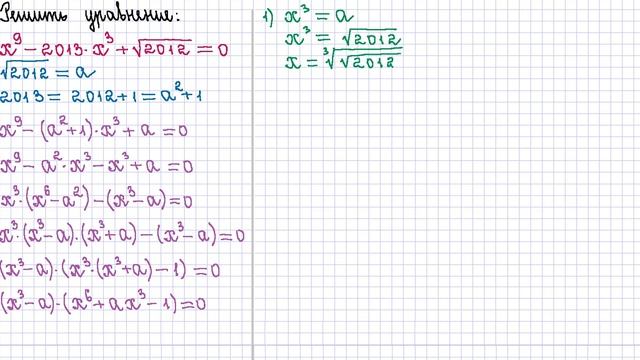 Решить уравнение:
x⁹ − 2013·x³ + √2012 = 0
√2012 = a
2013 = 2012 + 1 = a² + 1
x⁹ − (a² + 1)·x³ + a = 0
x⁹ − a²·x³ − x³ + a = 0
x³·(x⁶ − a²) − (x³ − a) = 0
x³·(x³ − a)·(x³ + a) − (x³ − a) = 0
(x³ − a)·(x³·(x³ + a) − 1) = 0
(x³ − a)·(x⁶ + ax³ − 1) = 0
1) x³ = a
x³ = √2012
x = ∛√2012